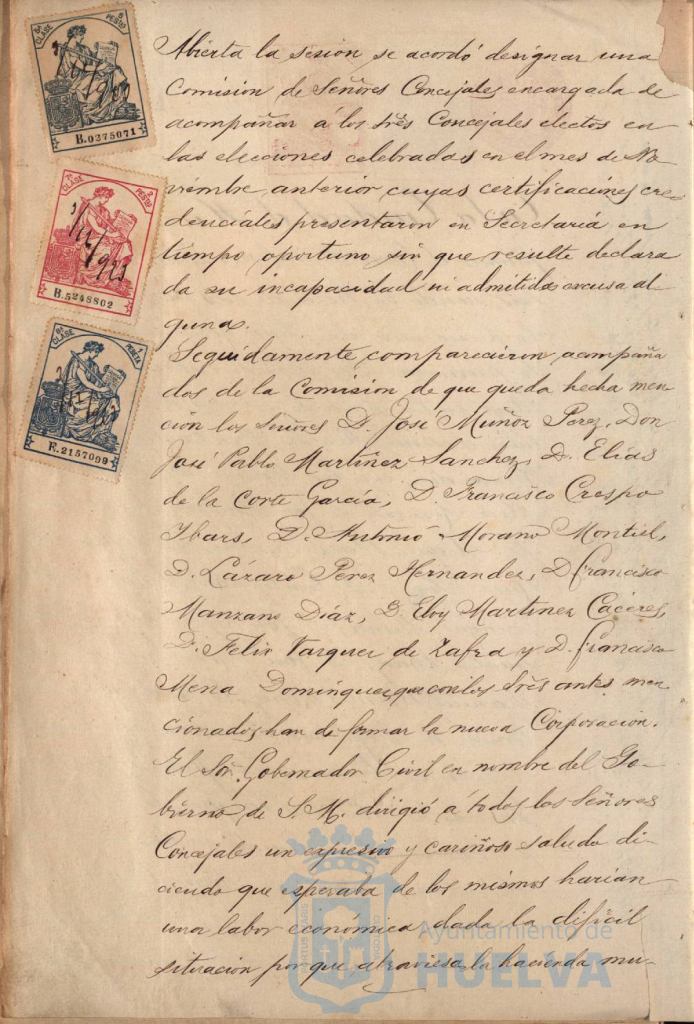 5ª CLASE
5 PESTAS
B.0275071
7ª CLASE
2 PESTAS
B.5248802
8ª CLASE
1 PESETA
E.2157099
Abierta la sesión se acordó designar una
Comision de Señores Concejales encargada de
acompañar á los trés Concejales electos en
las elecciones celebradas en el mes de No-
viembre anterior cuyas certificaciones cre
denciales presentaron en Secretaría en
tiempo oportuno sin que resulte declara
da su incapacidad ni admitida escusa al
guna.
Seguidamente comparecieron acompaña
dos de la Comision de que queda hecha men
ción los Señores D. José Muñoz Perez, Don
José Pablo Martínez Sanchez, D. Elías
de la Corte García, D. Francisco Crespo
Ybars, D. Antonio Morano Montiel,
D. Lázaro Perez Hernandez, D. Francisco
Manzano Díaz, D. Eloy Martinez Cáceres,
D. Felix Vazquez de Zafra y D. Francisco
Mena Dominguez, que con los trés antes men
cionados han de formar la nueva Corporacion.
El Sor. Gobernador Civil en nombre del Go-
bierno de S. M. dirigió á todos los Señores
Concejales un expresivo y cariñoso saludo di-
ciendo que esperaba de los mismos harian
una labor económica dada la dificil
situacion por que atraviesa la hacienda mu-
Ayuntamiento de
HUELVA